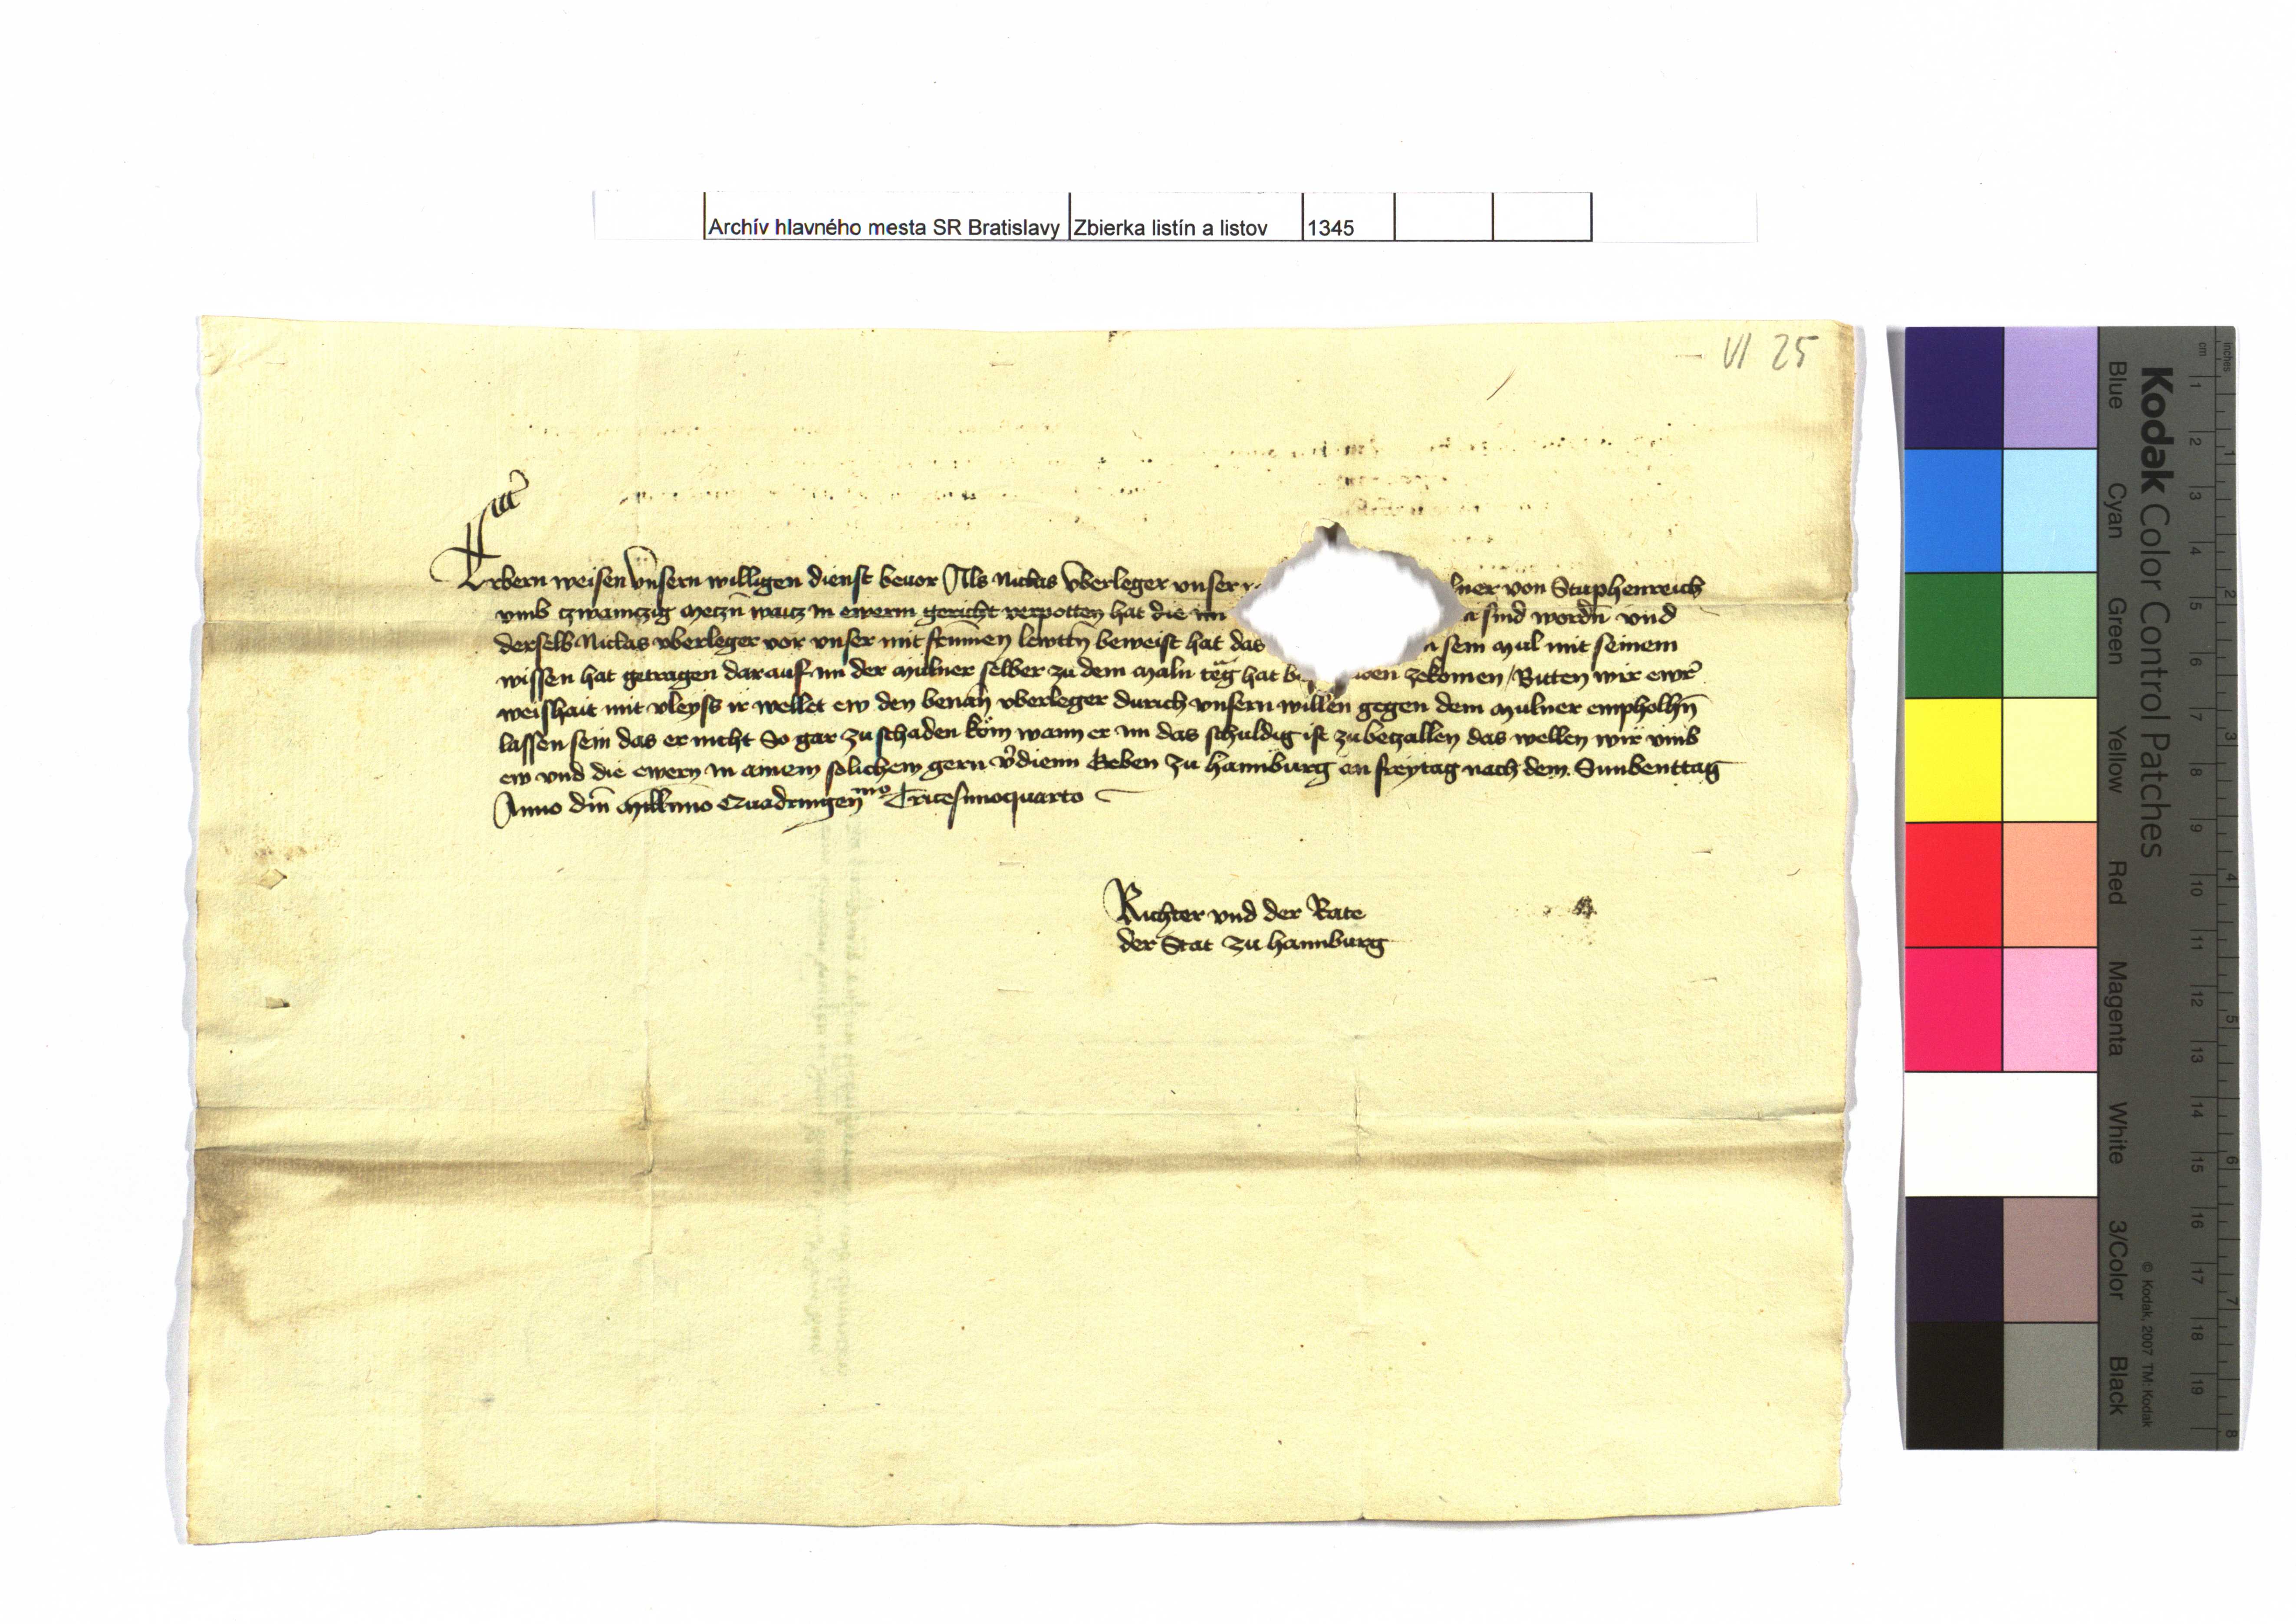 Archív hlavného mesta SR Bratislavy Zbierka listín a listov 1345
VI 25
Erbern weisen Vnsern willigen dienst beuor Als Niclas Vberleger vnser lner von Stuphenreich
vmb tzwainczig meczn̄ waicz in ewerm gericht verpotten hat die im sind wordn̄ vnd
derselb Niclas vberleger vor vnser mit frumen lewttn̄ beweist hat das sein mul mit seinem
wissen hat getragen darauf im der mulner selber zu dem maln täg hat zekomen / Bitten wir ewr̄
weishait mit vleyss ir wellet ew den benan̄ vberleger durich vnsern willen gegen dem mulner empholhn̄
lassen sein das er nicht So gar zu schaden köm wann er im das schuldig ist zubeczallen das wellen wir vmb
ew vnd die ewern in ainem solichem gern v̄dienn Geben zu Hannburg an freytag nach dem Sunbenttag
Anno dm̄ Millmo Quadringenmo Tricesimoquarto
Richter vnd der Rate
der Stat zu hannburg
Kodak Color Control Patches
Blue Cyan Green Yellow Red Magenta White 3/Color Black
© Kodak, 2007 TM: Kodak
inches 1 2 3 4 5 6 7 8
cm 1 2 3 4 5 6 7 8 9 10 11 12 13 14 15 16 17 18 19